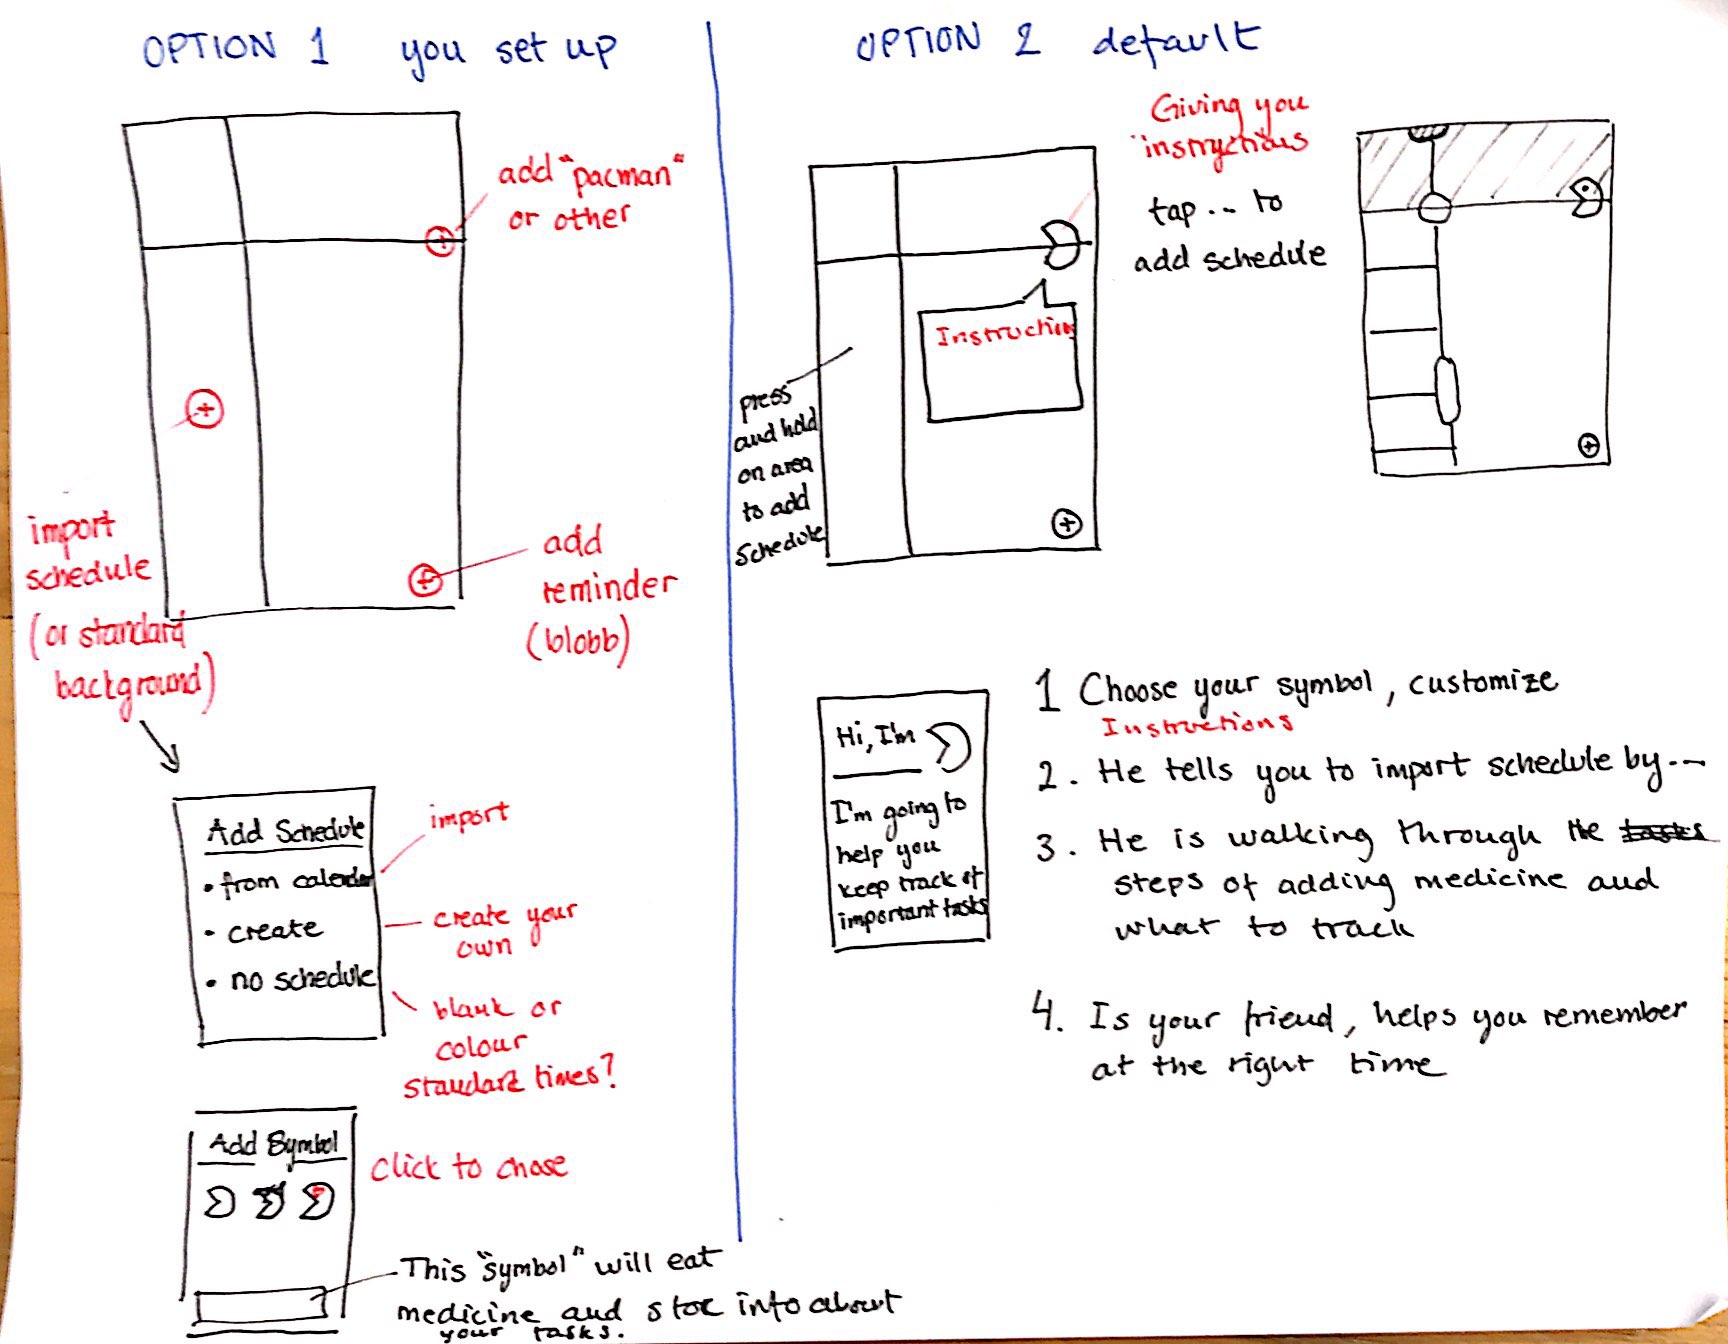 OPTION 1 you set up
add "pacman"
or other
import
schedule
(or standard
background)
add
reminder
(blobb)
Add Schedule
• from calendar
• create
• no schedule
import
create your
own
blank or
colour
standard times?
Add Symbol
click to chose
This "symbol" will eat
medicine and store info about
your tasks.
OPTION 2 default
Giving you
instructions
tap... to
add schedule
Instruction
press
and hold
on area
to add
Schedule
Hi, I'm
I'm going to
help you
keep track of
important tasks
1 Choose your symbol, customize
Instructions
2. He tells you to import schedule by...
3. He is walking through the tasks
steps of adding medicine and
what to track
4. Is your friend, helps you remember
at the right time